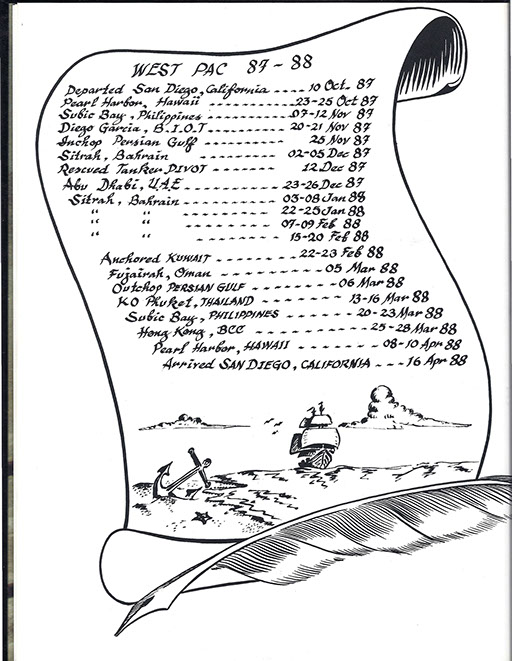 WEST PAC 87 - 88
Departed San Diego, California ---- 10 Oct. 87
Pearl Harbor, Hawaii ---------- 23-25 Oct 87
Subic Bay, Philippines ---------- 07-12 Nov 87
Diego Garcia, B.I.O.T. ---------- 20-21 Nov 87
Inchop Persian Gulf ---------- 25 Nov 87
Sitrah, Bahrain ---------- 02-05 Dec 87
Rescued Tanker PIVOT ---------- 12 Dec 87
Abu Dhabi, U.A.E ---------- 23-26 Dec 87
Sitrah, Bahrain ---------- 03-08 Jan 88
" " ---------- 22-25 Jan 88
" " ---------- 07-09 Feb 88
" " ---------- 15-20 Feb 88
Anchored KUWAIT ---------- 22-23 Feb 88
Fujairah, Oman ---------- 05 Mar 88
Outchop PERSIAN GULF ------- 06 Mar 88
KO Phuket, THAILAND ---------- 13-16 Mar 88
Subic Bay, PHILIPPINES -------- 20-23 Mar 88
Hong Kong, BCC ---------- 25-28 Mar 88
Pearl Harbor, HAWAII ------- 08-10 Apr 88
Arrived SAN DIEGO, CALIFORNIA --- 16 Apr 88